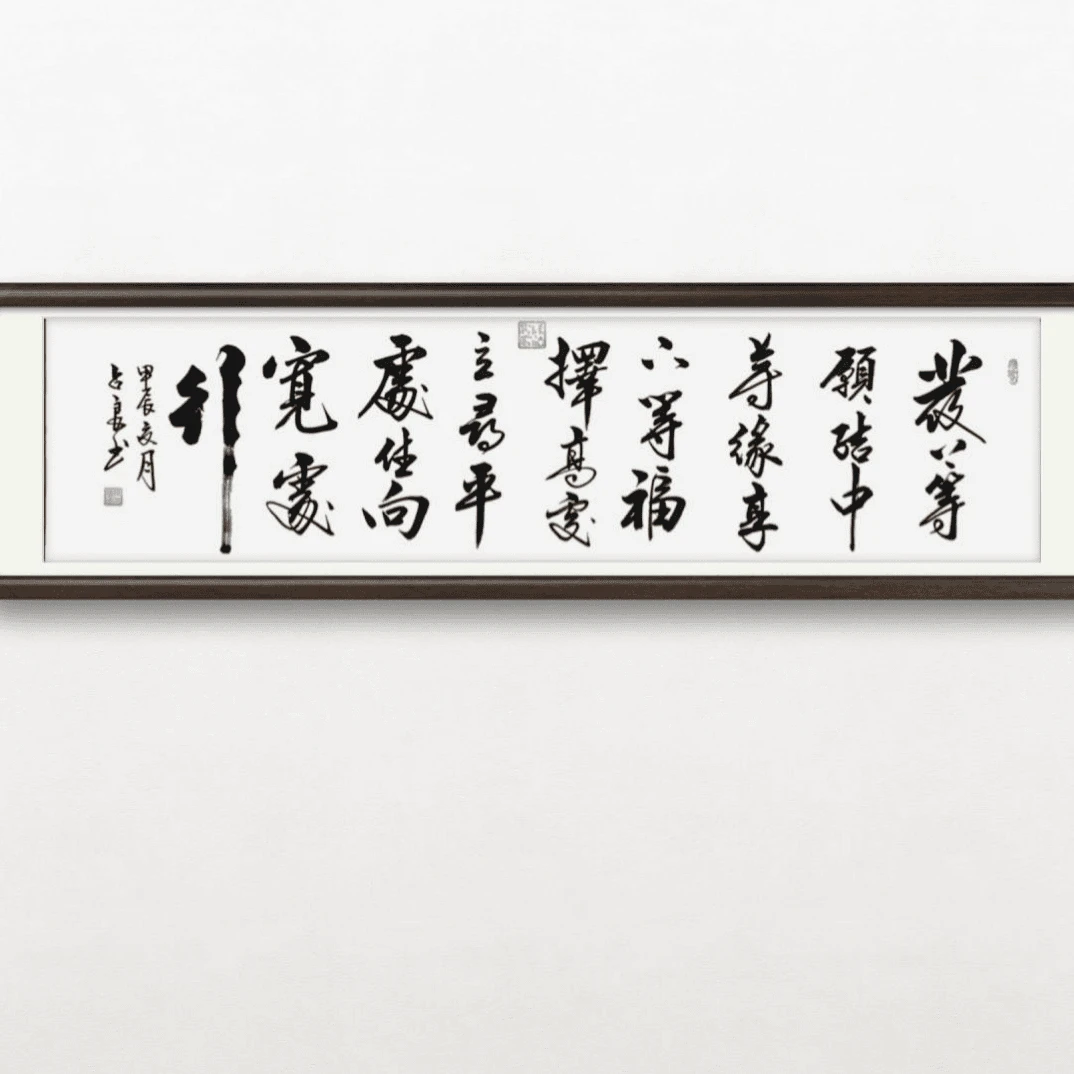 發上等
願結中
等緣享
下等福
擇高處
立尋平
處住向
寬處
行
甲辰夏月
占書